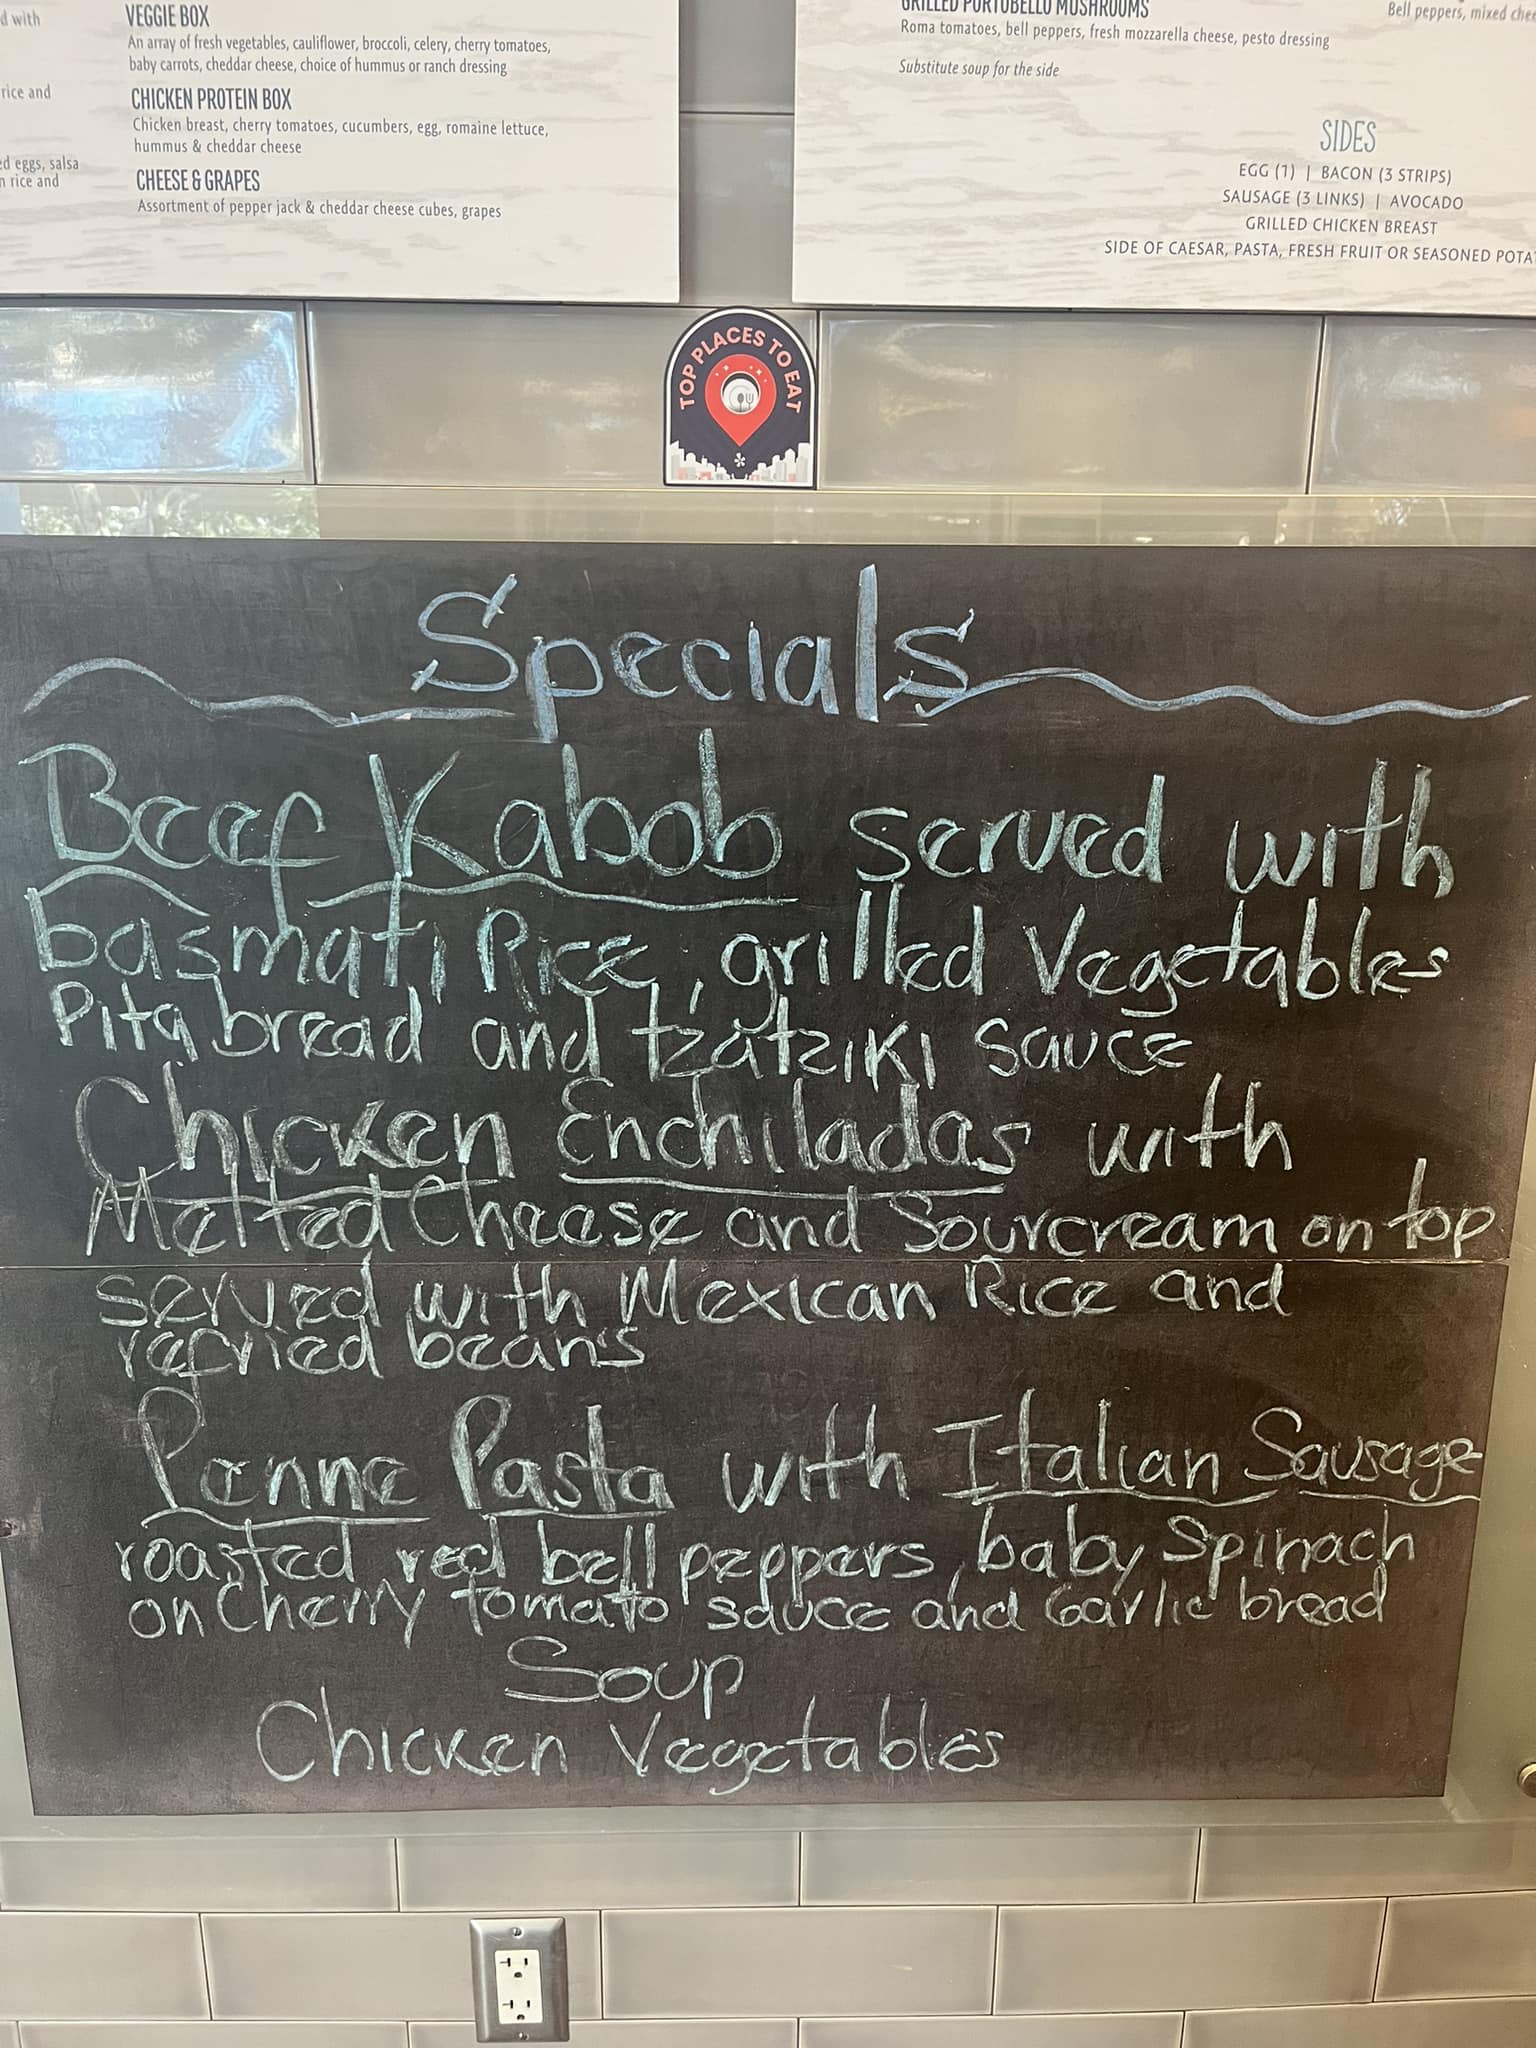 d with
rice and
ed eggs, salsa
n rice and
VEGGIE BOX
An array of fresh vegetables, cauliflower, broccoli, celery, cherry tomatoes,
baby carrots, cheddar cheese, choice of hummus or ranch dressing
CHICKEN PROTEIN BOX
Chicken breast, cherry tomatoes, cucumbers, egg, romaine lettuce,
hummus & cheddar cheese
CHEESE & GRAPES
Assortment of pepper jack & cheddar cheese cubes, grapes
GRILLED PORTOBELLO MUSHROOMS
Roma tomatoes, bell peppers, fresh mozzarella cheese, pesto dressing
Substitute soup for the side
Bell peppers, mixed chee
SIDES
EGG (1) | BACON (3 STRIPS)
SAUSAGE (3 LINKS) | AVOCADO
GRILLED CHICKEN BREAST
SIDE OF CAESAR, PASTA, FRESH FRUIT OR SEASONED POTA
TOP PLACES TO EAT
Specials
Beef Kabob served with
basmati Rice, grilled Vegetables
Pita bread and tzatziki sauce
Chicken Enchiladas with
Melted Cheese and Sourcream on top
served with Mexican Rice and
refried beans
Penne Pasta with Italian Sausage
roasted red bell peppers, baby Spinach
on Cherry tomato sauce and Garlic bread
Soup
Chicken Vegetables